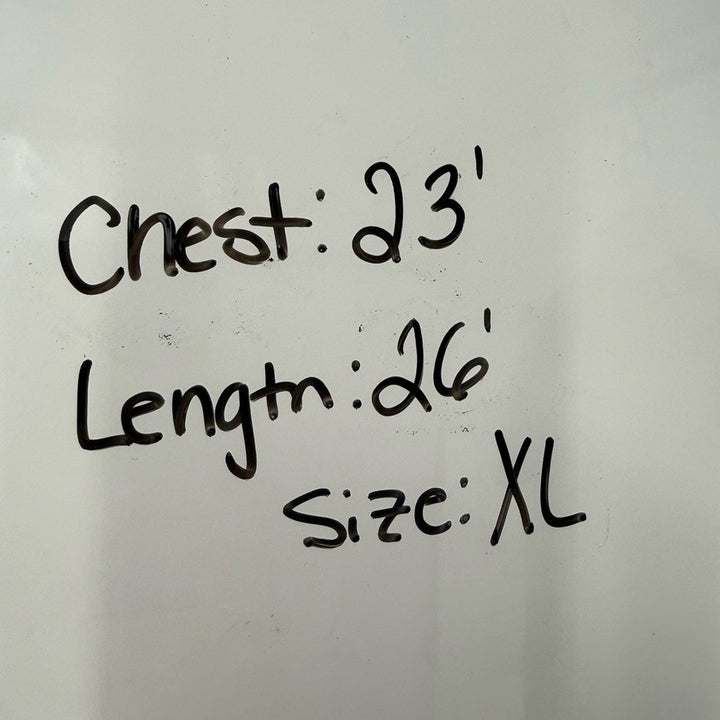 Chest: 23'
Length: 26'
Size: XL